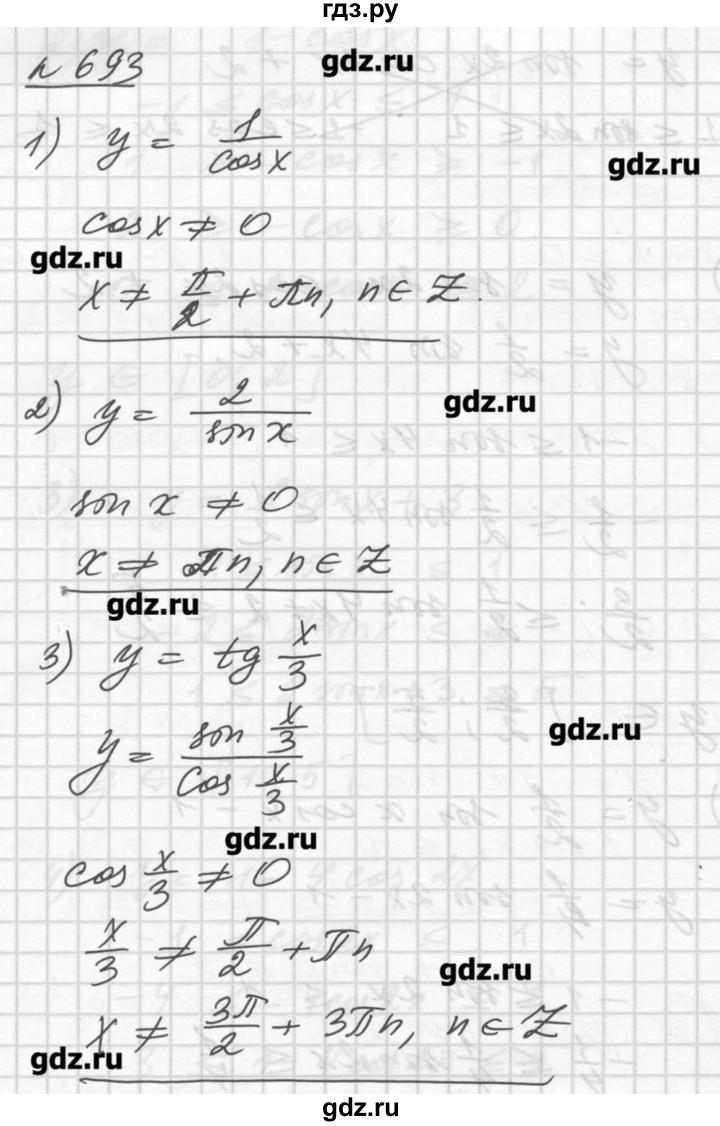 гдз.ру
gdz.ru
n 693
1) y = 1/cos x
gdz.ru
cos x ≠ 0
gdz.ru
x ≠ π/2 + πn, n ∈ Z.
2) y = 2/sin x
gdz.ru
sin x ≠ 0
x ≠ πn, n ∈ Z
gdz.ru
3) y = tg x/3
y = sin x/3 / cos x/3
gdz.ru
gdz.ru
cos x/3 ≠ 0
x/3 ≠ π/2 + πn
gdz.ru
x ≠ 3π/2 + 3πn, n ∈ Z
gdz.ru
gdz.ru